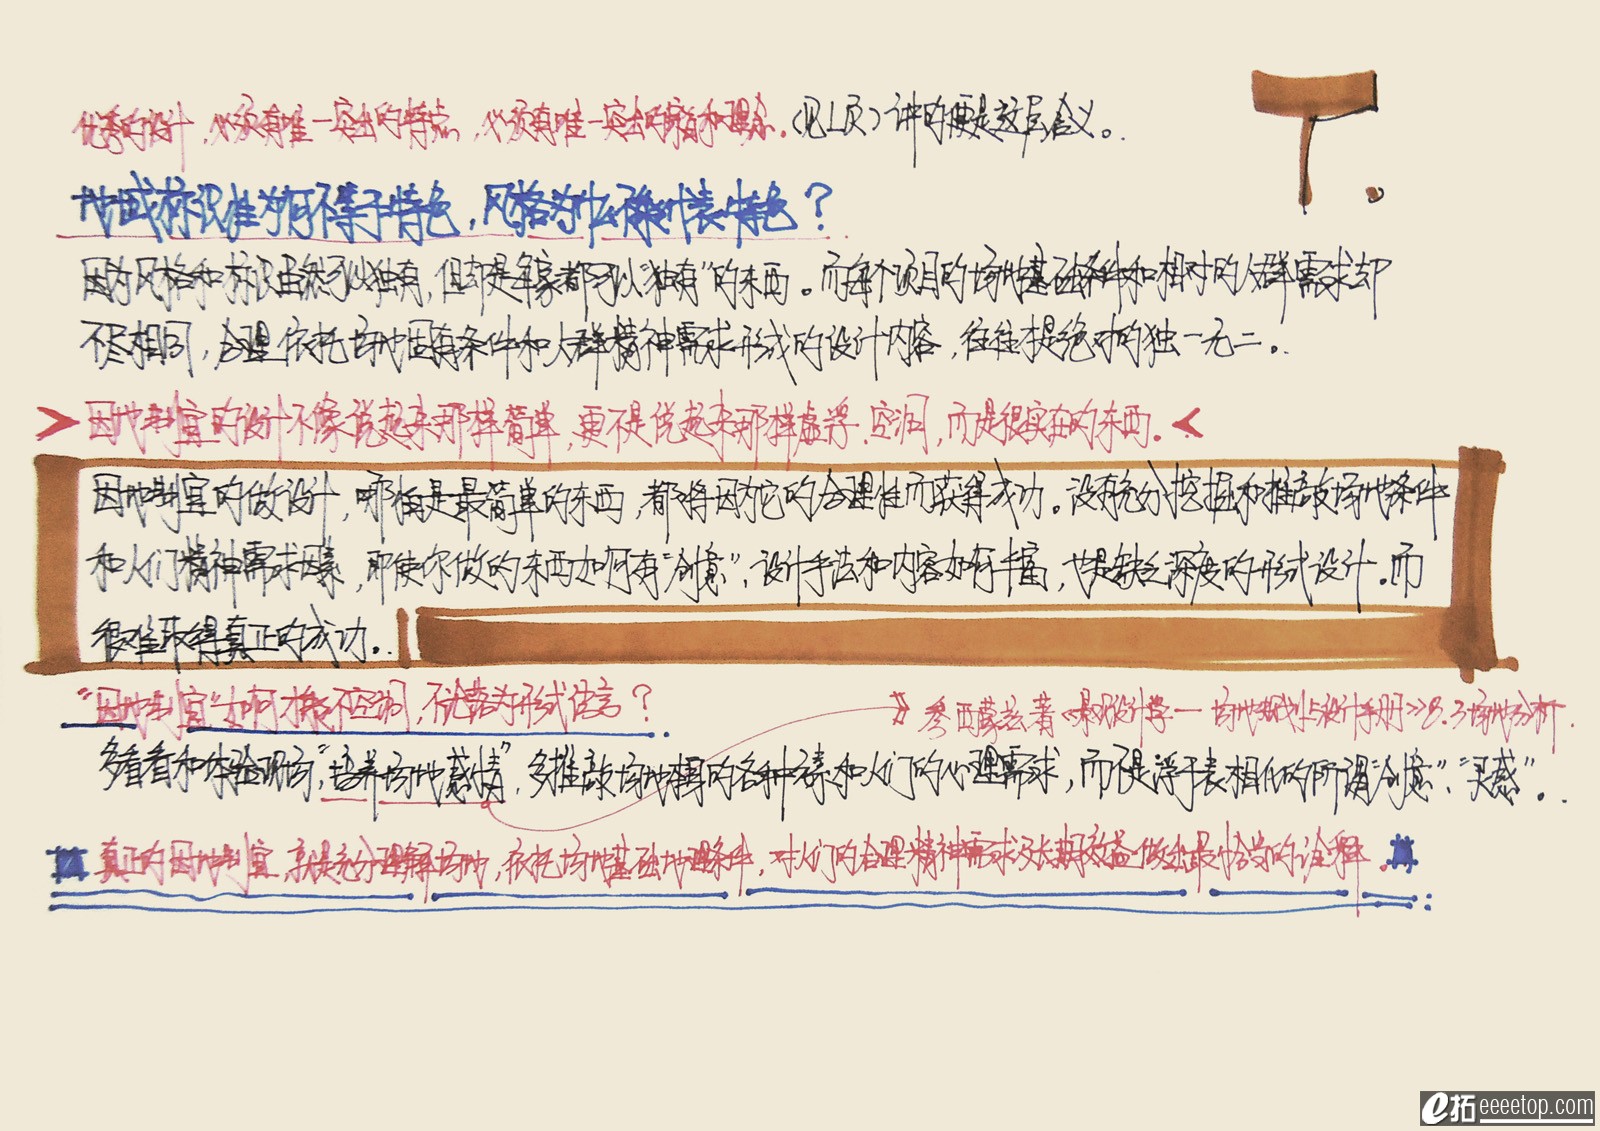 优秀的设计，必须有唯一突出的特点，必须有唯一突出的和理念。（见L页）讲的便是这层含义。
T.
地域标识性为何不等于特色，风格为什么不能代表特色？
因为风格和标识虽然可以独有，但却是每家都可以“独有”的东西。而每个项目的场地基础条件和相对的人群需求却
不尽相同，合理依托场地固有条件和人群精神需求形成的设计内容，往往才是绝对的独一无二。
因地制宜的设计不像说起来那样简单，更不是说起来那样虚浮、空洞，而是很实在的东西。
因地制宜的做设计，哪怕是最简单的东西，都将因为它的合理性而获得成功。没有充分挖掘和推敲场地条件
和人们精神需求因素，即使你做的东西如何有“创意”、设计手法和内容如何丰富，也是缺乏深度的形式设计。而
很难取得真正的成功。
“因地制宜”如何才能不空洞，不沦落为形式语言？
参西蒙兹著《景观设计学—场地规划与设计手册》8.3场地分析.
多看看和体验现场，“培养场地感情”，多推敲场地的各种因素和人们的心理需求，而不是浮于表相的所谓“创意”、“灵感”。
真正的因地制宜，就是充分理解场地，依托场地基础地理条件，对人们的合理精神需求及长期效益做出最恰当的诠释.
e拓 eeeetop.com